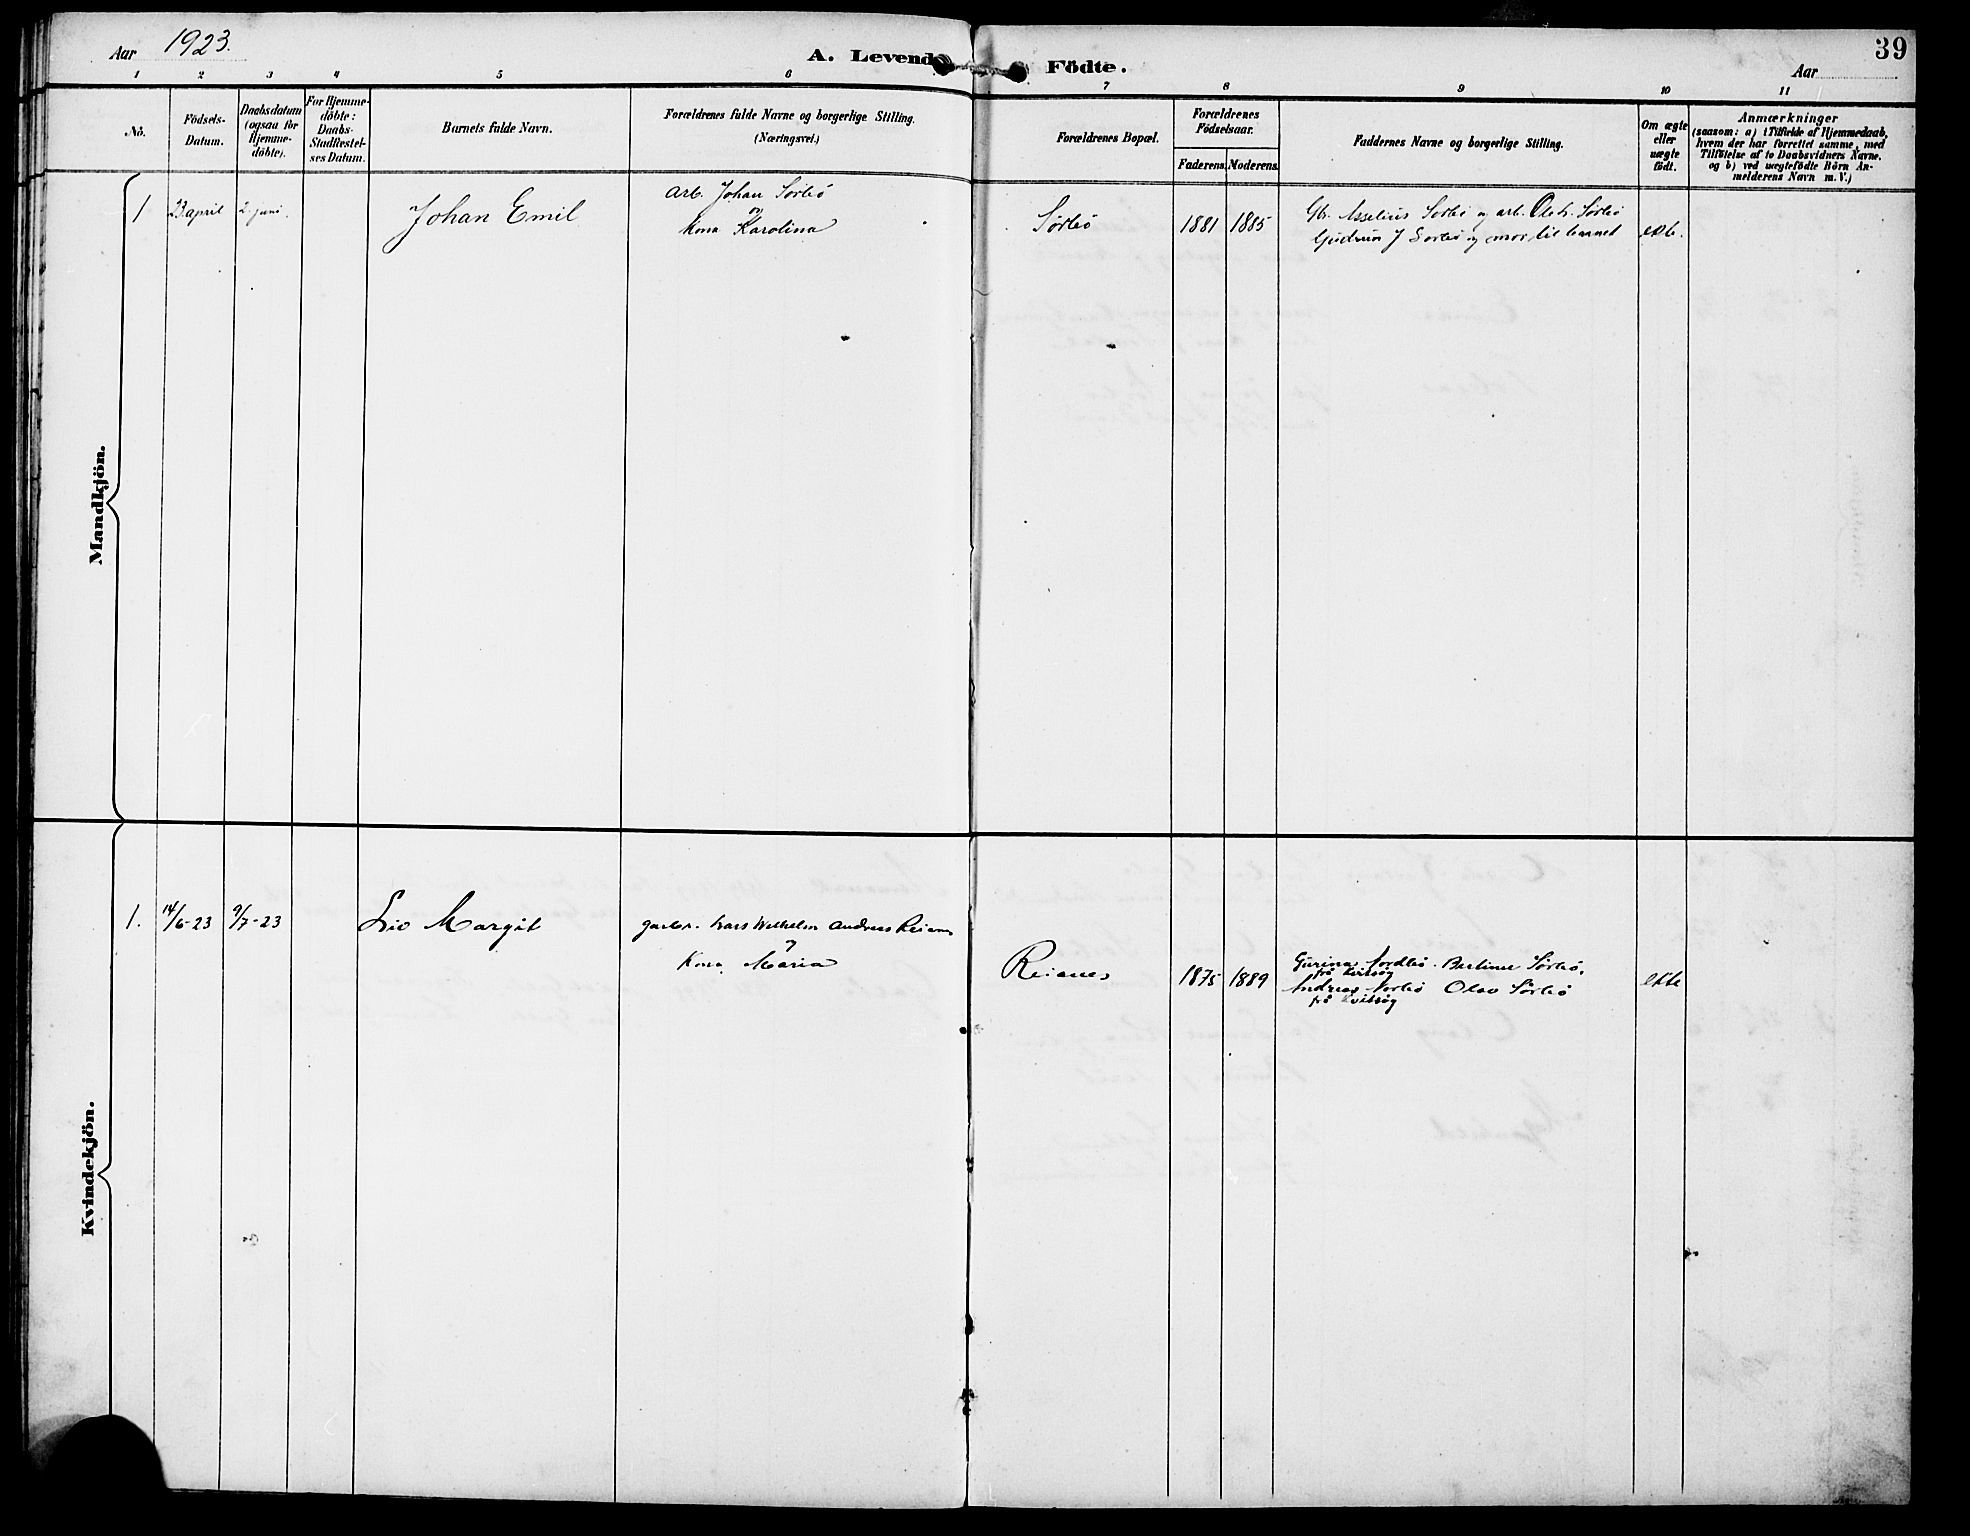 Aar 1923.
A. Levende Födte.
39
Aar
1 2 3 4 5 6 7 8 9 10 11
No.
Födsels-
Datum.
Daabsdatum
(ogsaa for
Hjemme-
döbte).
For Hjemme-
döbte:
Daabs-
Stadfestel-
ses Datum.
Barnets fulde Navn.
Forældrenes fulde Navne og borgerlige Stilling.
(Næringsvei.)
Forældrenes Bopæl.
Forældrenes
Födselsaar.
Faderens Moderens
Faddernes Navne og borgerlige Stilling.
Om ægte
eller
uægte
födt.
Anmærkninger
(saasom: a) i Tilfælde af Hjemmedaab,
hvem der har forrettet samme, med
Tilföielse af to Daabsvidners Navne,
og b) ved uægtefödte Börn An-
melderens Navn m. V.)
Mandkjön.
1
23 april
2 juni.
Johan Emil
arb. Johan Sörbö
og
kona Karolina
Sörbö
1881
1885
Gbr. Asselius Sörbö og arb. Sörbö
Gudrun J Sörbö og mor til barnet
ekte.
Kvindekjön.
1.
14/6-23
9/7-23
Liv Margit
gardbr. Lars Wilhelm Andreas Reianes
og
kona Maria
Reianes
1875
1889
Gurina Nordbö. Berliner Sörbö,
frå Kvitsöy
Andreas Nordbö Olav Sörbö
frå Kvitsöy
ekte